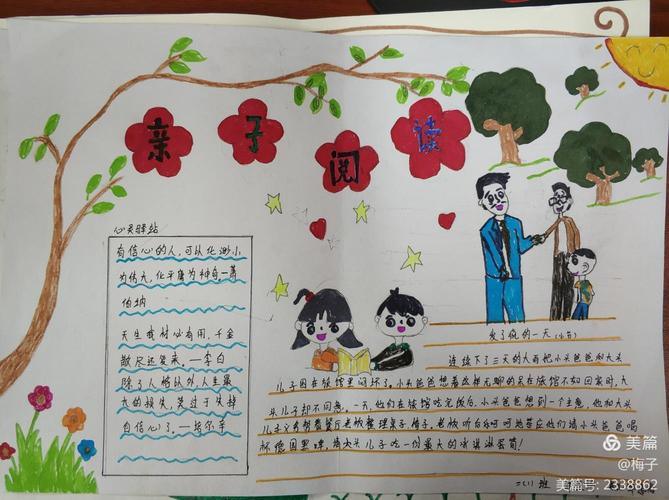 亲子阅读
心灵驿站
有信心的人,可以化渺小
为伟大,化平庸为神奇。—萧
伯纳
天生我材必有用,千金
散尽还复来。—李白
除了人格以外,人生最
大的损失,莫过于失掉
自信心了。—培尔辛
发了疯的一天(小节)
连续下了三天的大雨把小头爸爸和大头
儿子困在旅馆里闷坏了。小头爸爸想着这样无聊的呆在旅馆不如回家呢,大
头儿子却不同意。一天,他们在旅馆吃完饭后,小头爸爸想到一个主意,他和大头
儿子
餐厅老板整理桌子椅子,老板听后呵呵地答应他们请小头爸爸喝
杯
啤,请大头儿子吃一份最大的冰淇淋蛋筒!
二(1)班
美篇
@梅子
美篇号: 2338862